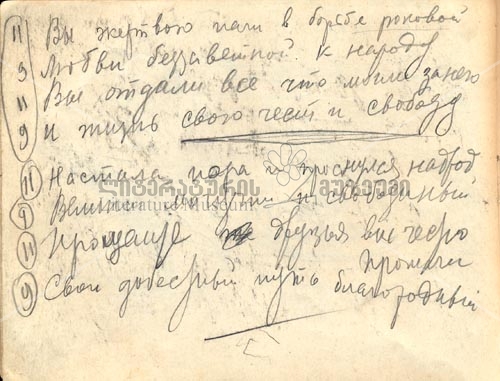 11 Вы жертвою пали в борьбе роковой
9 Любви беззаветной к народу
11 Вы отдали все что могли за него
9 и жизнь свою честь и свободу
11 Настала пора и проснулся народ
ლიტერატურის მუზეუმი
Literature Museum
9 Великий могучий и свободный
11 Прощайте друзья вы честно
прошли
9 Свой доблестный путь благородный